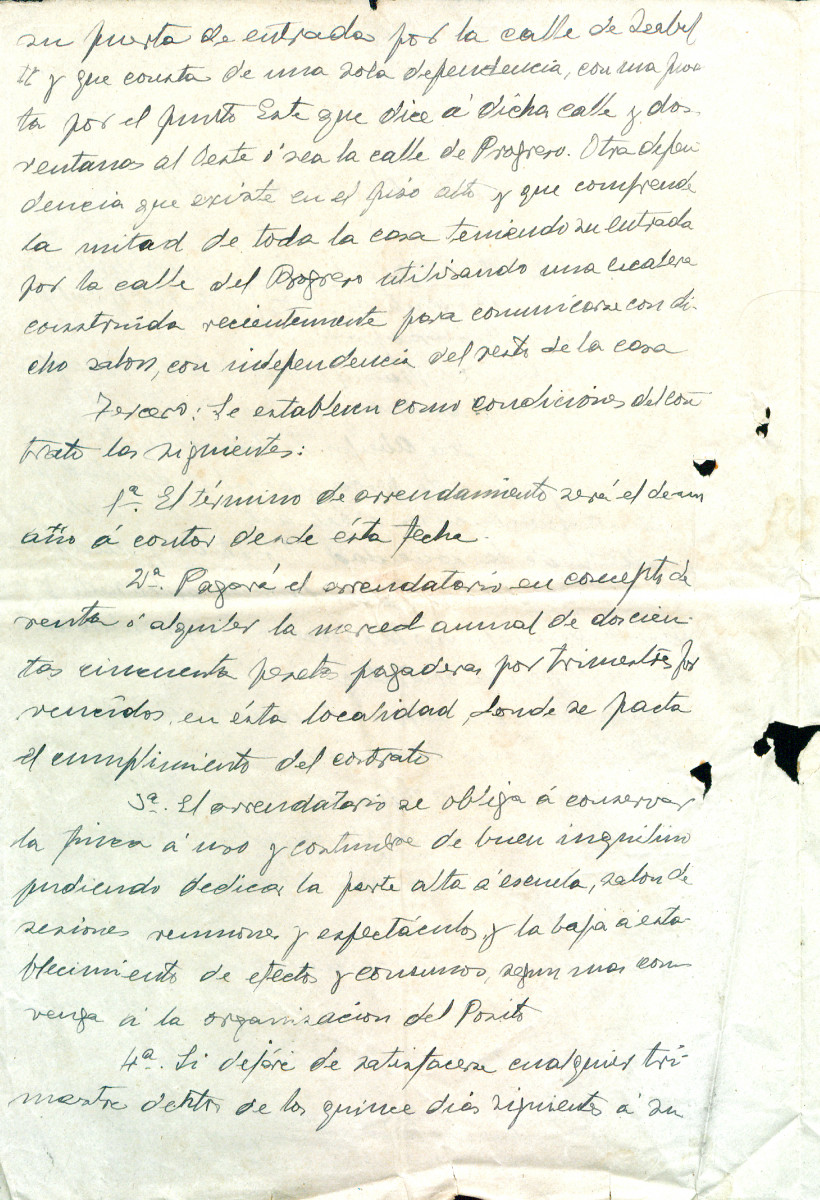 su puerta de entrada por la calle de Isabel
II y que consta de una sola dependencia, con una puer
ta por el punto Este que dice á dicha calle y dos
ventanas al Oeste ó sea la calle de Progreso. Otra depen
dencia que existe en el piso alto y que comprende
la mitad de toda la casa teniendo su entrada
por la calle del Progreso utilisando una escalera
construida recientemente para comunicarse con di-
cho salon, con independencia del resto de la casa
Tercero: Se establecen como condiciones del con
trato las siguientes:
1ª. El término de arrendamiento será el de un
año á contar desde ésta fecha.
2ª. Pagará el arrendatario en concepto de
renta ó alquiler la merced anual de doscien-
tas cincuenta pesetas pagaderas por trimestres
vencidos, en ésta localidad, donde se pacta
el cumplimiento del contrato
3ª. El arrendatario se obliga á conservar
la finca á uso y costumbre de buen inquilino
pudiendo dedicar la parte alta á escuela, salon de
sesiones reuniones y espectáculos, y la baja á esta-
blecimiento de efectos y consumos, segun mas con
venga á la organisación del Posito
4ª. Si dejare de satisfacerse cualquier tri-
mestre dentro de los quince dias siguientes á su